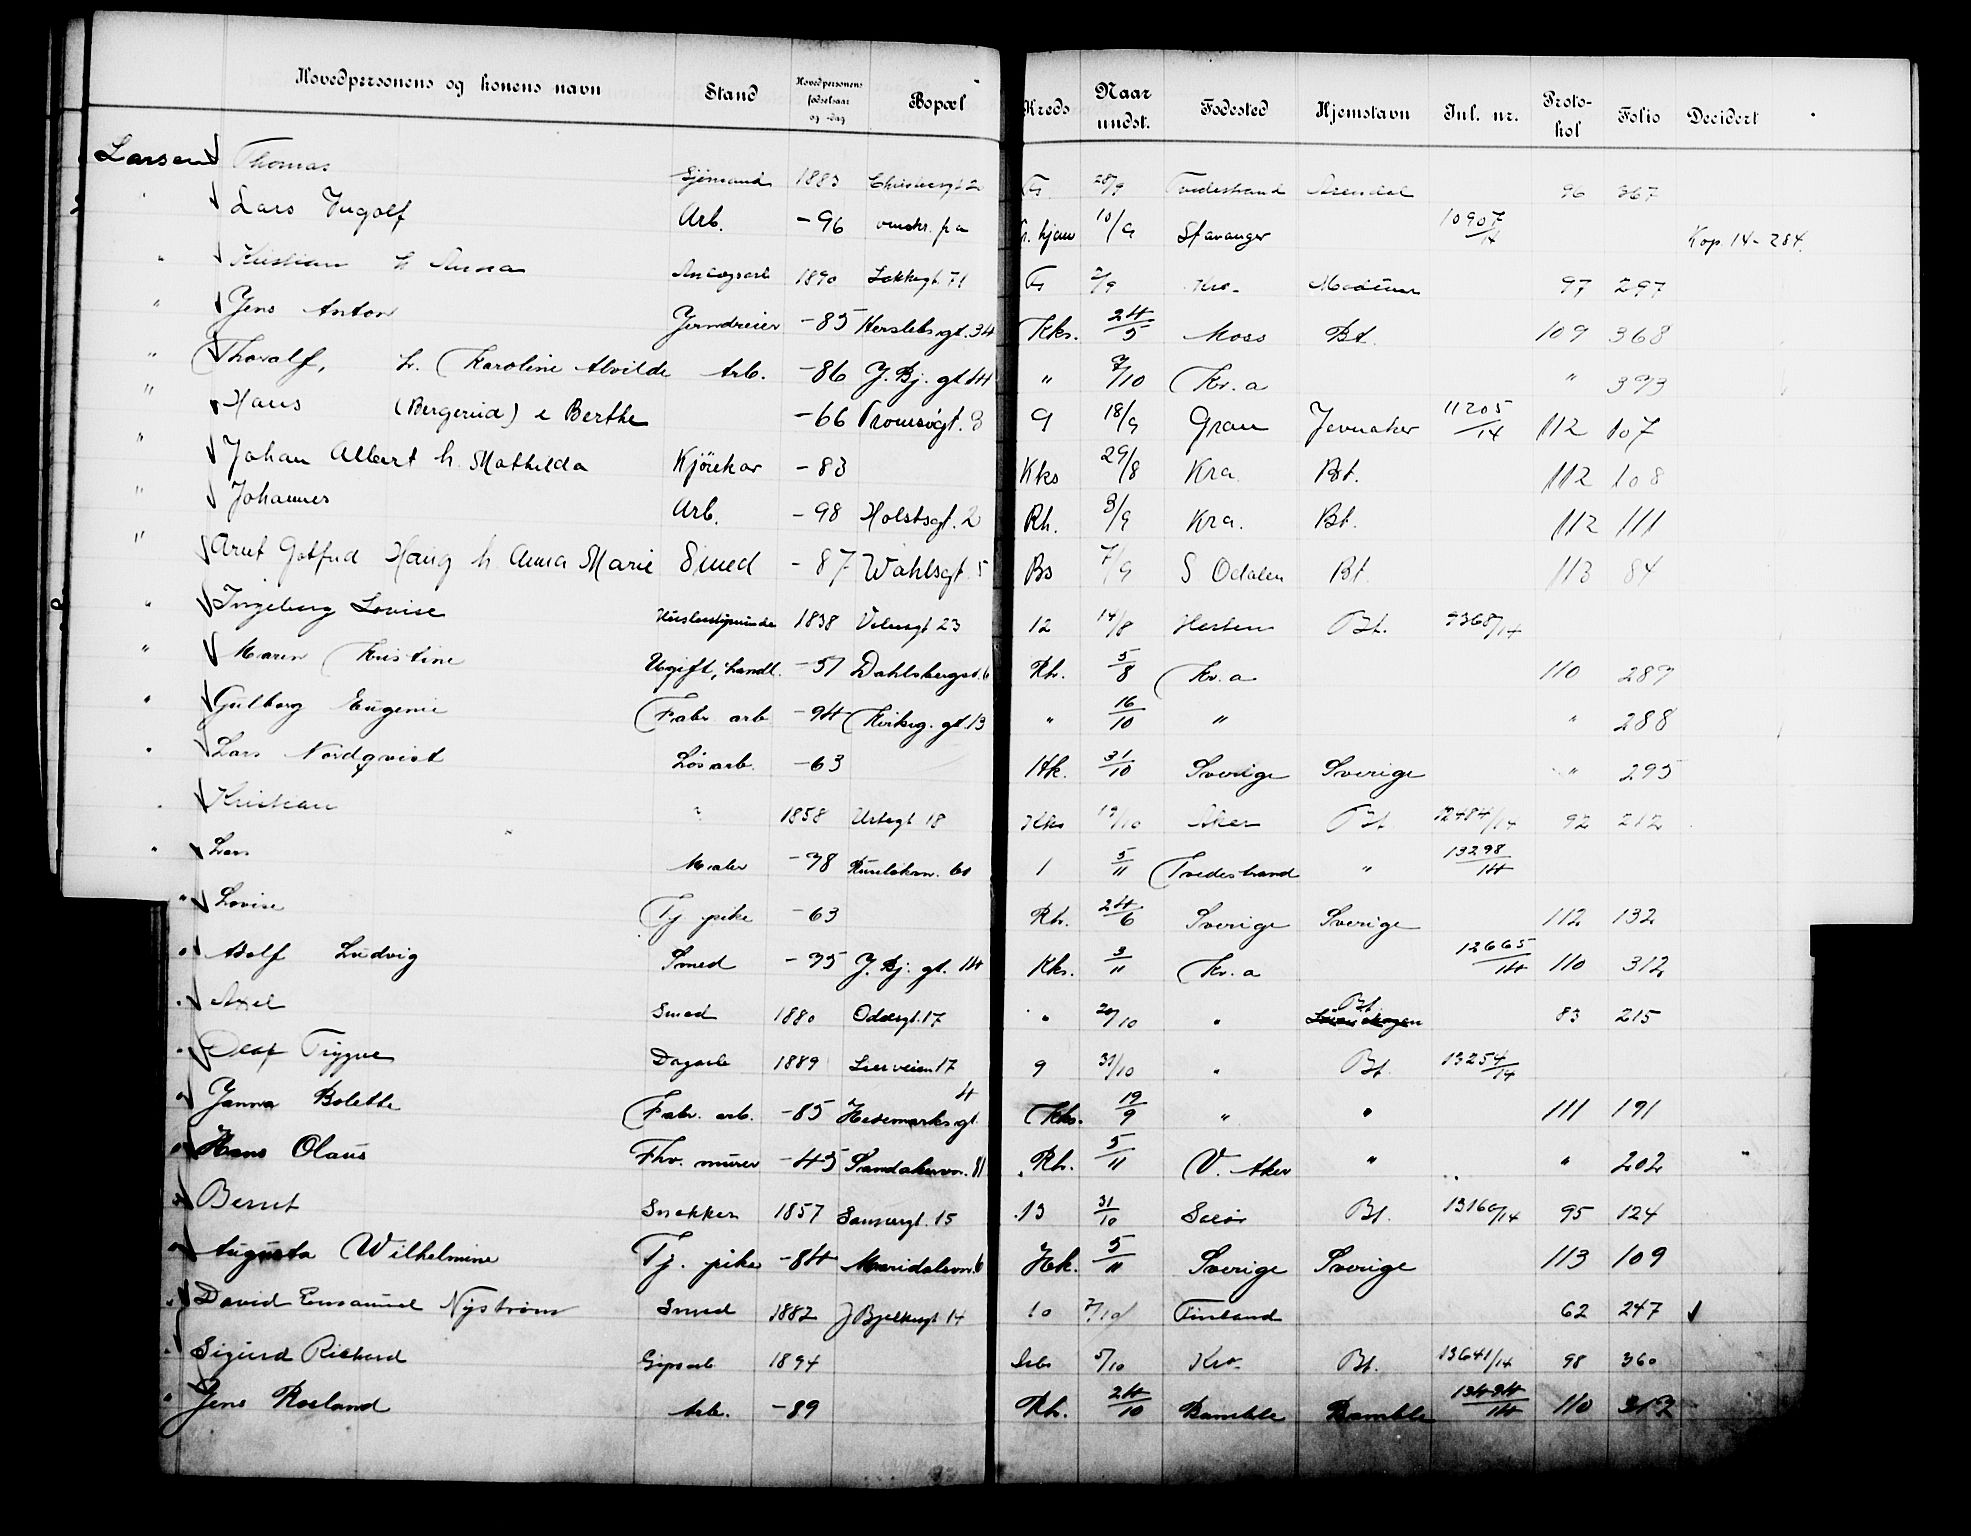 Hovedpersonens og konens navn Stand Hovedpersonens fødselsaar og -dag Bopæl Kreds Naar undst. Fødested Hjemstavn Jnl. nr. Proto-kol Folio Decidert
Larsen Thomas Sjömand 1883 Fr 28/9 Tvedestrand Arendal 96 367
" Lars Ingolf Arb. -96 omstr. fra hjem 10/9 Stavanger 10907/14 Kop. 14 - 284.
" Kristian h. Anna 1890 Lakkegt. 71 Fr 2/9 Kra. Modum 97 297
" Jens Anton Jerndreier -85 Herslebsgt. 34 Kks. 24/5 Moss Bt. 109 368
" Thoralf, h. Karoline Alvilde Arb. -86 J. Bj. gt. 14 " 7/10 Kr.a " 393
" Hans (Bergerud) e Berthe -66 Tromsögt. 3 9 18/9 Gran Jevnaker 11205/14 112 107
" Johan Albert h. Mathilda Kjörekar -83 Kks 29/8 Kra. Bt. 112 108
" Johannes Arb. -98 Holstsgt. 2 Rh. 3/9 Kra. Bt. 112 111
" Arnt Gotfred Haug h Anna Marie Smed -87 Wahlsgt. 5 Bs 7/9 S Odalen Bt. 113 84
" Ingeborg Lovise 1838 23 12 14/8 Bt. 9368/14
" Maren Kristine Ugift, handl. -51 Dahlsbergst. 6 Rh. 5/8 Kr.a 110 289
" Gulborg Eugenie Fabr. arb. -94 13 " 16/10 " " 288
" Lars Nordqvist Lös arb. -63 Hk. 31/10 Sverige Sverige " 295
" Kristian " 1858 Urtegt 18 Kks 19/10 Aker Bt. 12484/14 92 212
" Lars Maler -38 60 1 5/11 Tvedestrand " 13298/14
" Lovise Tj pike -63 Rh. 24/6 Sverige Sverige 112 132
" Adolf Ludvig Smed -95 J. Bj. gt. 14 Kks. 3/11 Kr.a 12665/14 110 312
" Axel Smed 1880 Oddergt. 17 " 20/10 " Bt. 83 215
" Olaf Trygve Dagarb 1889 Lierveien 17 9 31/10 " Bt. 13254/14
" Janna Bolette Fabr. arb. -85 Hedemarksgt. 4 Kks. 19/9 " " 111 191
" Hans Olaus Fhv. murer -45 Sandakervn. 81 Rh. 5/11 V. Aker " " 202 "
" Bernt Snekker 1857 Sannergt. 15 13 31/10 Solør Bt. 13160/14 95 124
" Augusta Wilhelmine Tj. pike -84 Maridalsvn. 6 Hk. 5/11 Sverige Sverige 113 109
" David Emanuel Nyström Smed 1882 J Bjelkesgt 14 10 7/10 Finland 62 247
" Sigurd Richard Gipsarb 1894 5/10 Kra. Bt. 13641/14 98 360
" Jens Roeland Arb. -89 Rh. 24/10 Bamble Bamble 13494/14 110 313